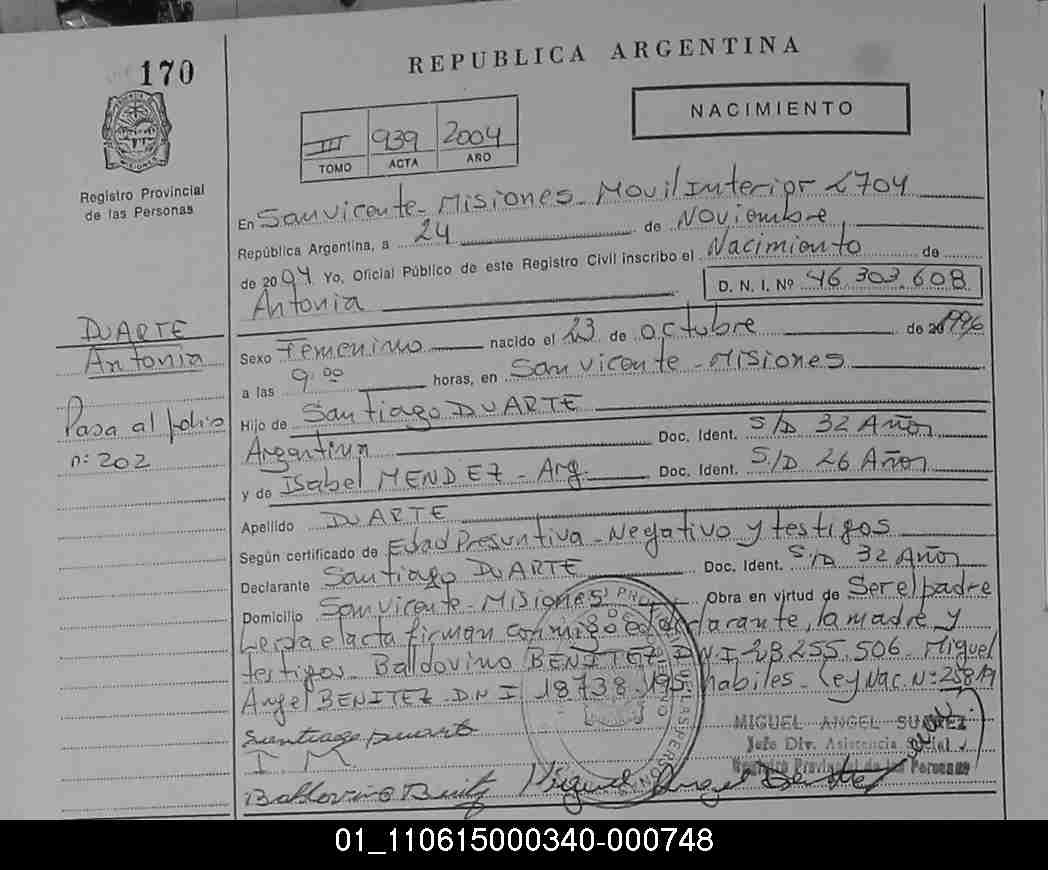 170
REPUBLICA ARGENTINA
NACIMIENTO
III 939 2004
TOMO ACTA AÑO
Registro Provincial
de las Personas
En San Vicente - Misiones - Movil Interior 2704
República Argentina, a 24 de Noviembre
de 2004 Yo, Oficial Público de este Registro Civil inscribo el Nacimiento de
Antonia D. N. I. Nº 46.303.608
DUARTE
Antonia
Pasa al folio
n: 202
Sexo Femenino nacido el 23 de octubre de 1996
a las 9:00 horas, en San Vicente - Misiones
Hijo de Santiago DUARTE
Argentina Doc. Ident. S/D 32 Años
y de Isabel MENDEZ - Arg. Doc. Ident. S/D 26 Años
Apellido DUARTE
Según certificado de Edad Presuntiva - Negativo y testigos
Declarante Santiago DUARTE Doc. Ident. S/D 32 Años
Domicilio San Vicente - Misiones Obra en virtud de Ser el padre
Leida el acta firman conmigo el declarante, la madre y
testigos Baldovino BENITEZ D.N.I. 28.255.506 - Miguel
Angel BENITEZ D.N.I 18.738.195 habiles - Ley Nac. N: 25819
Santiago Duarte
I. M.
MIGUEL ANGEL SUAREZ
Jefe Div. Asistencia Social
Registro Provincial de las Personas
Baldovino Miguel Angel
01_110615000340-000748